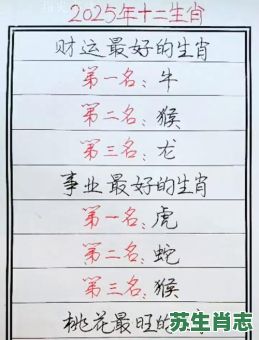 2025年十二生肖
财运最好的生肖
第一名：牛
第二名：猴
第三名：龙
事业最好的生肖
第一名：虎
第二名：蛇
第三名：猴
桃花最旺的
苏生肖志